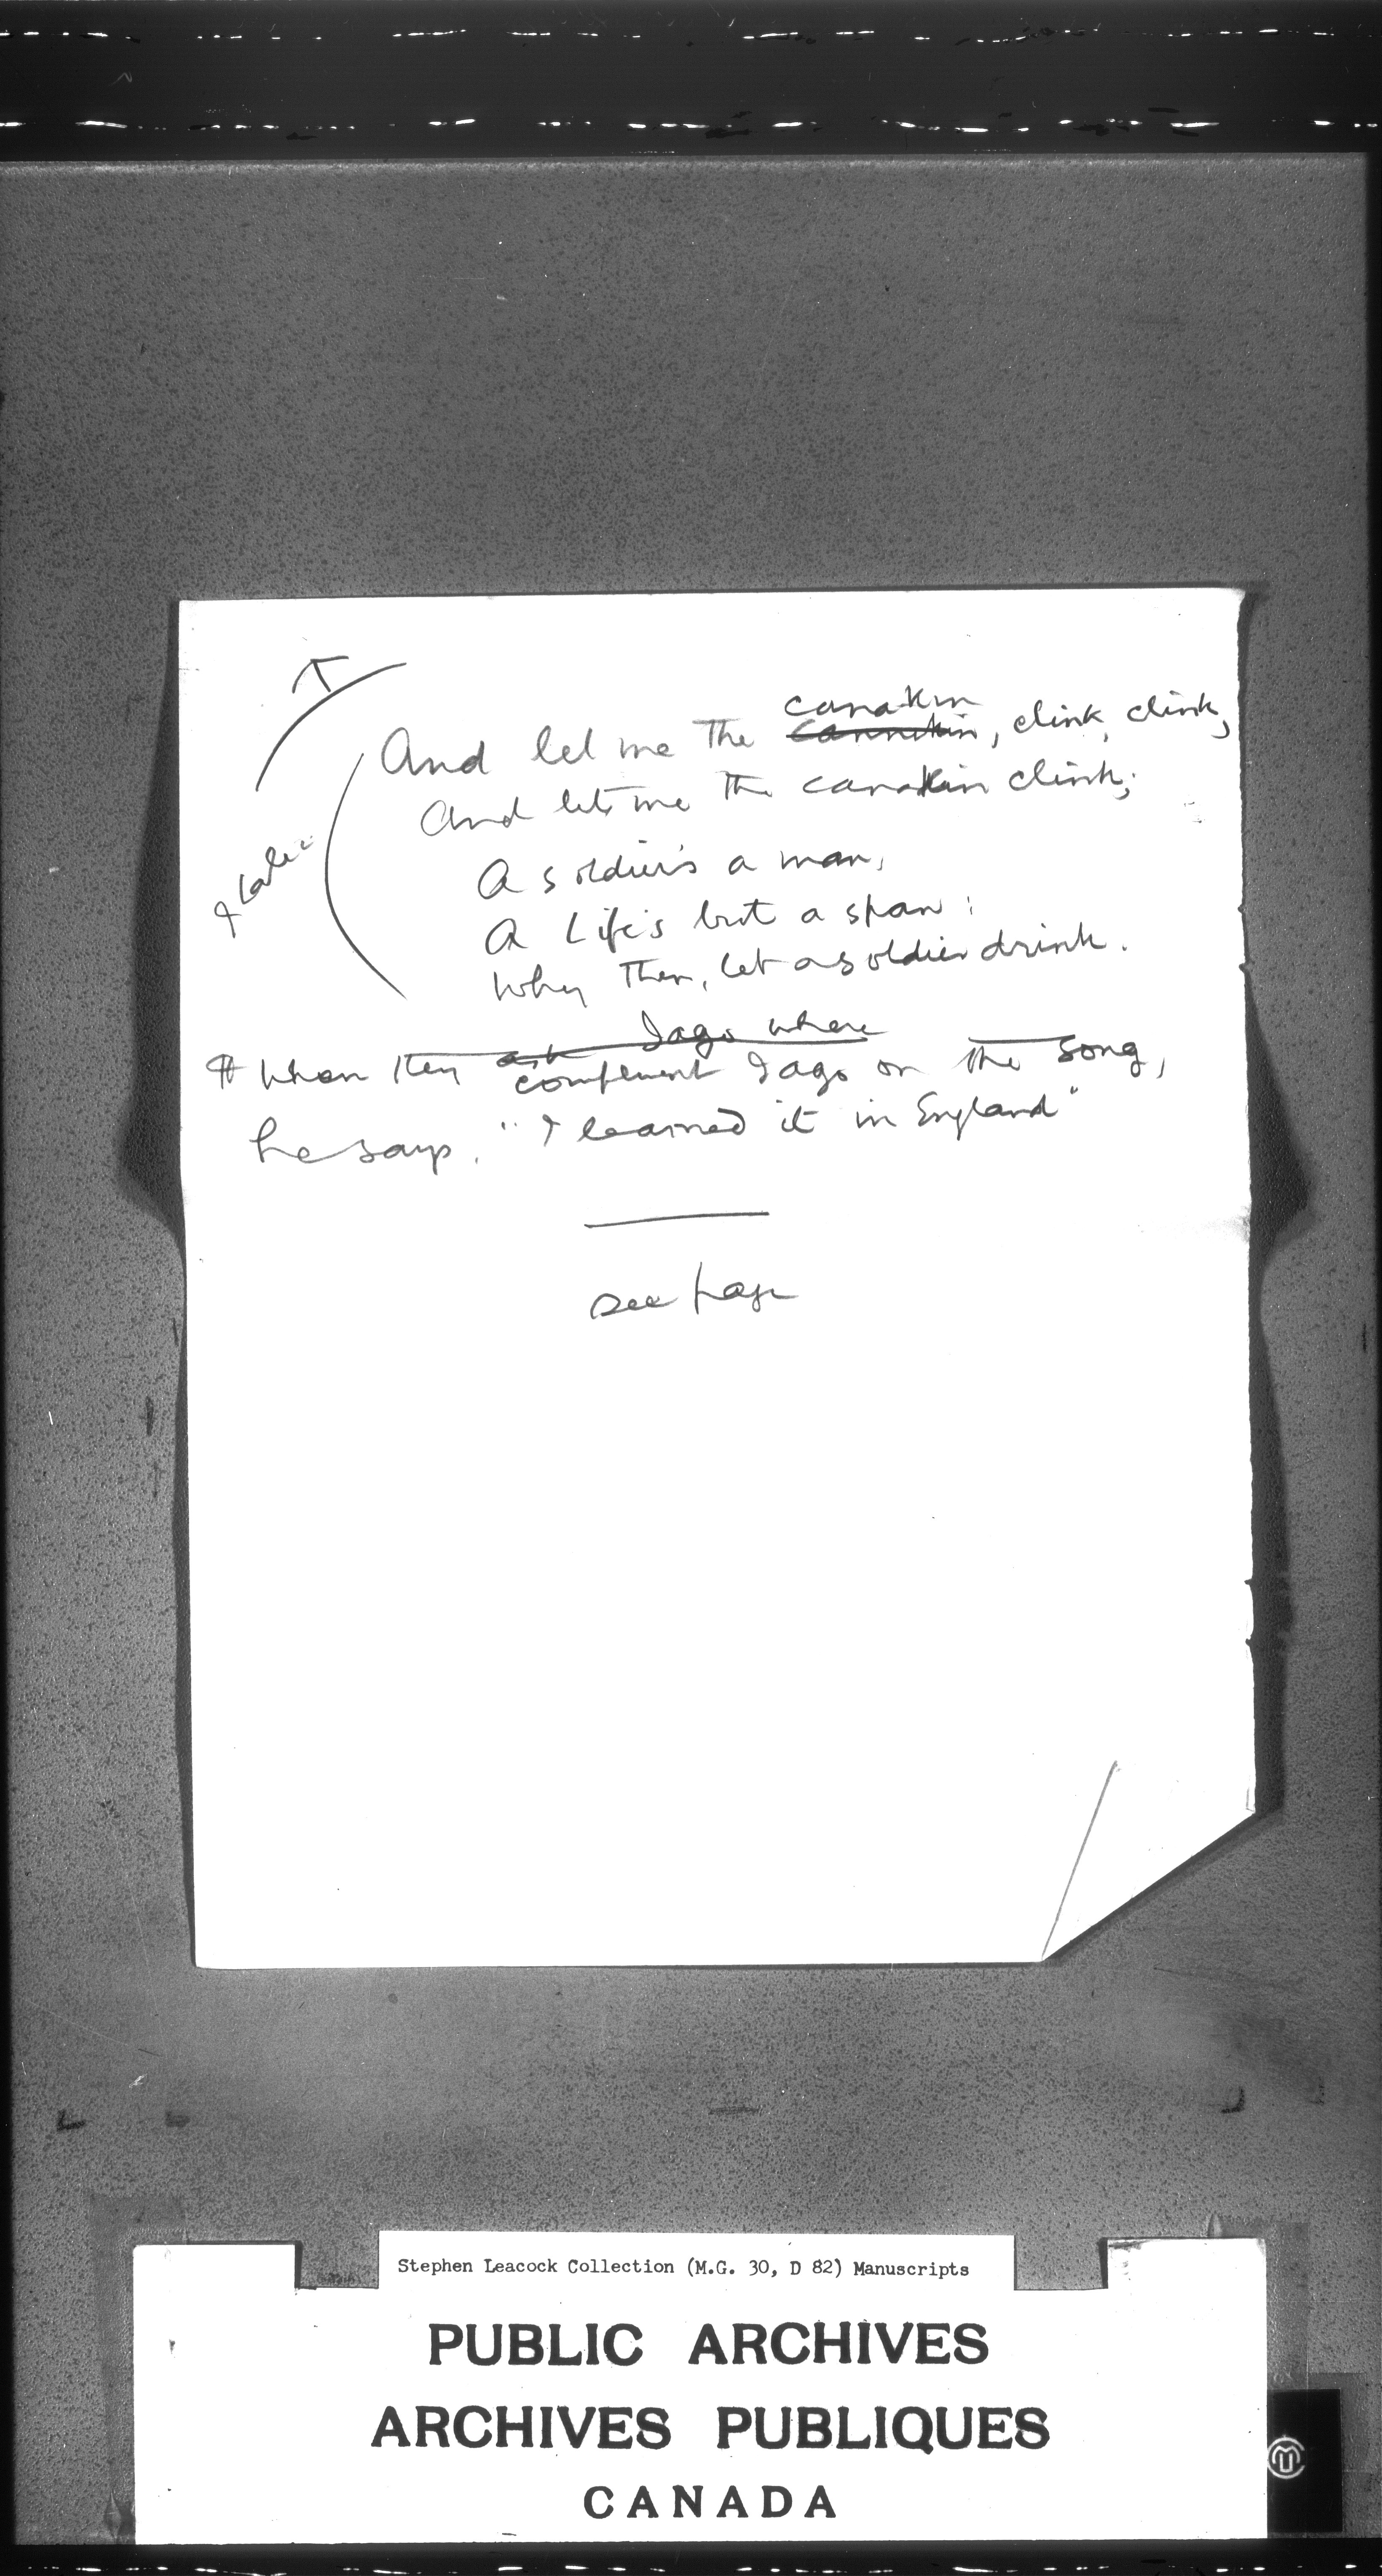 And let me the canakin
cannikin, clink, clink,
And let me the canakin clink;
A soldier's a man,
A Life's but a span;
Why then, let a soldier drink.
italic
ask Iago where
When they compliment Iago on the song,
he says, "I learned it in England"
see page
Stephen Leacock Collection (M.G. 30, D 82) Manuscripts
PUBLIC ARCHIVES
ARCHIVES PUBLIQUES
CANADA